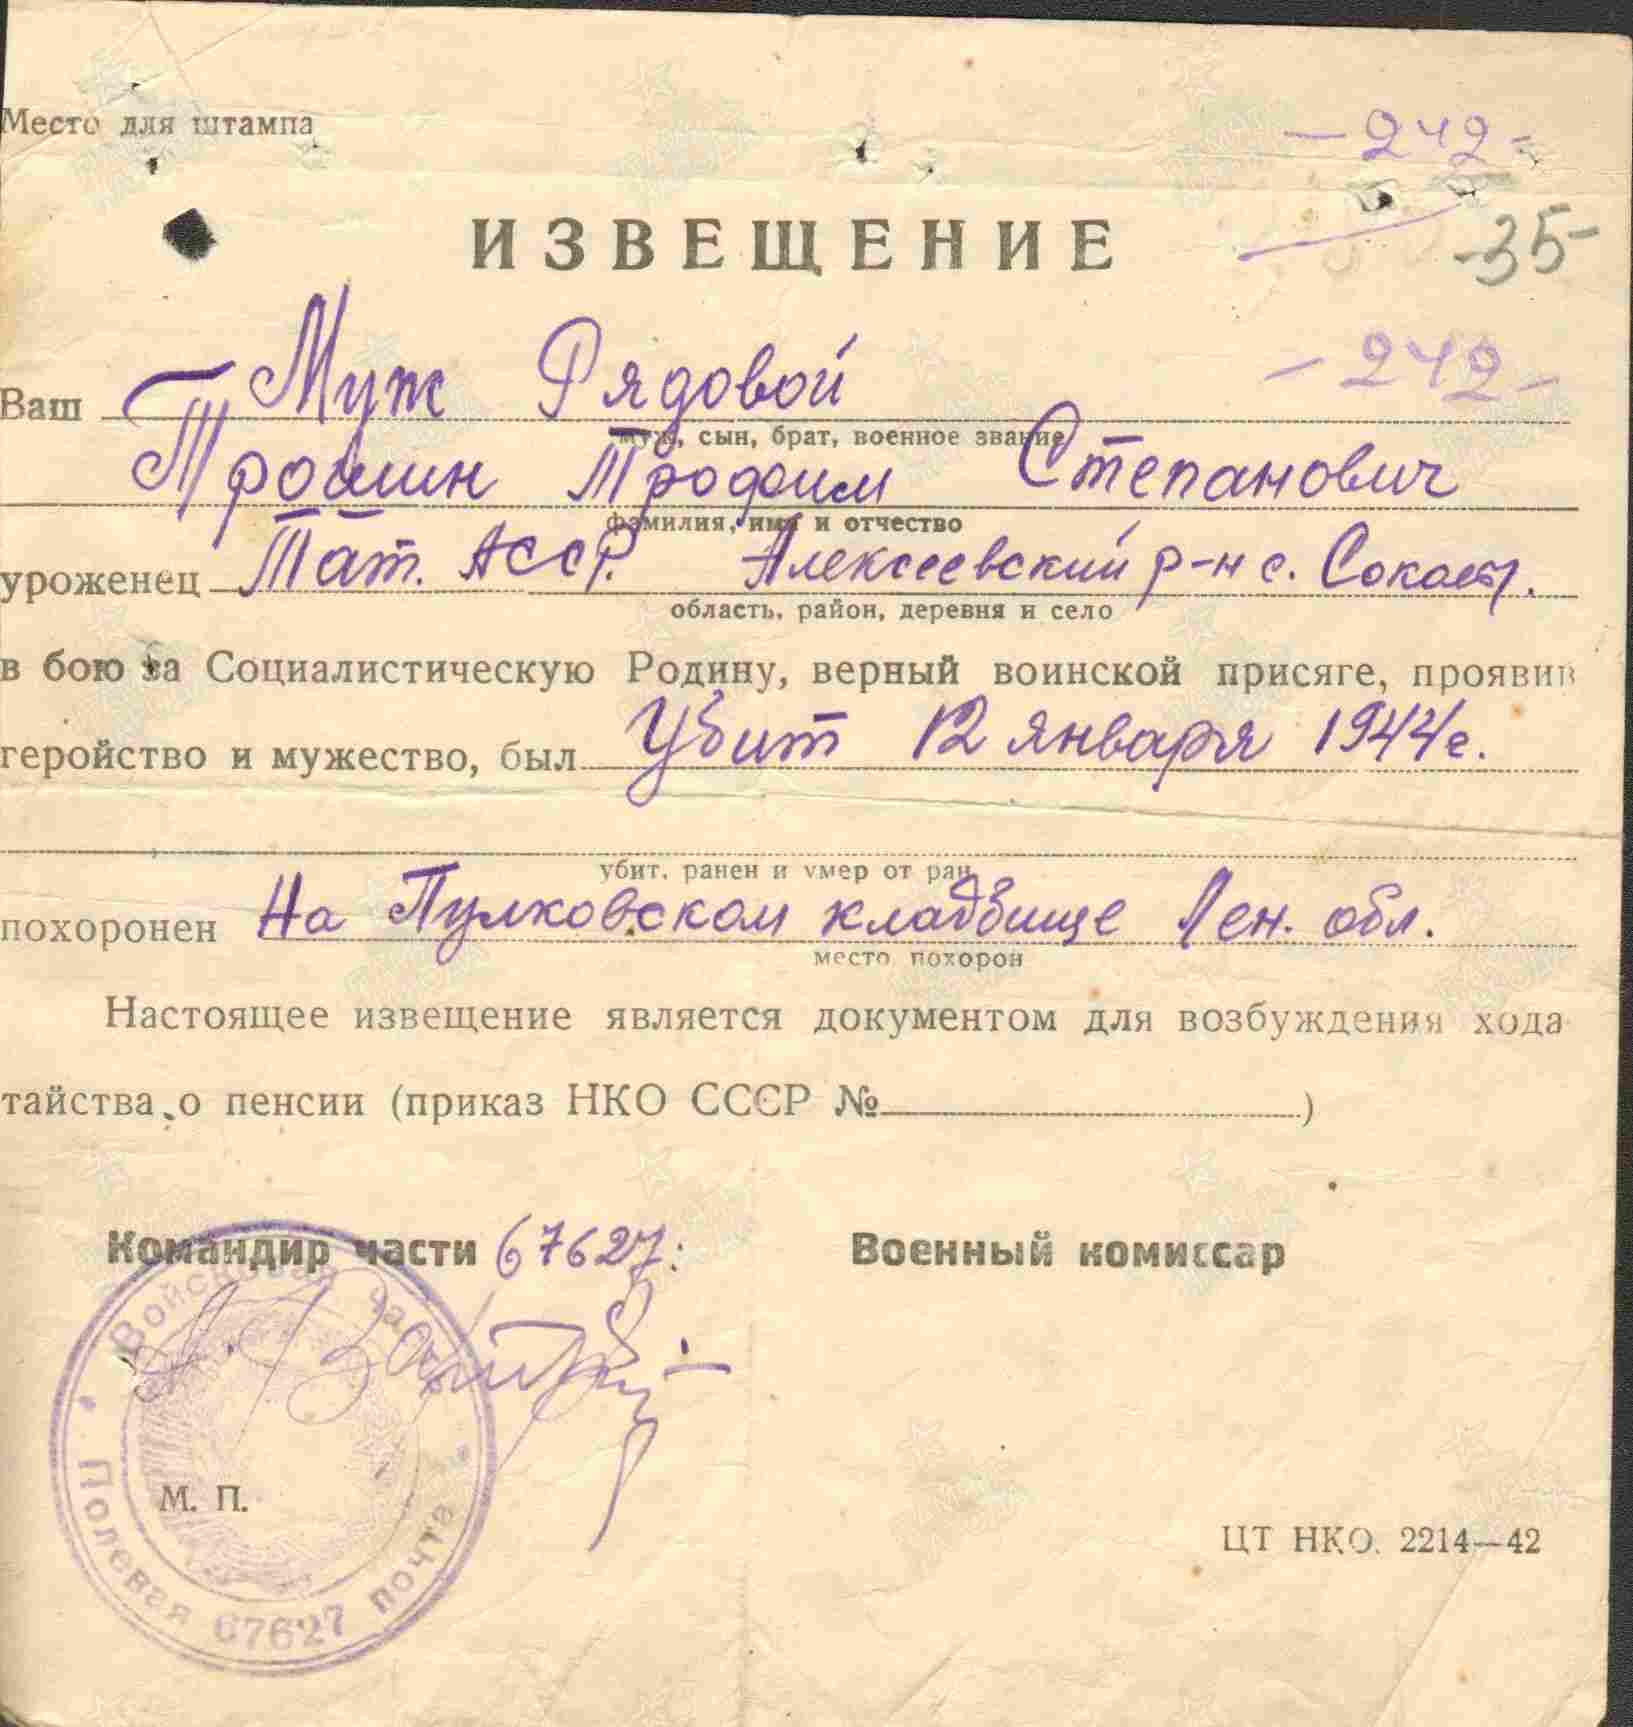 Место для штампа
- 242 -
ИЗВЕЩЕНИЕ
-35-
- 242 -
Ваш Муж Рядовой
муж, сын, брат, военное звание
Трошин Трофим Степанович
фамилия, имя и отчество
уроженец Тат. АССР. Алексеевский р-н с.
область, район, деревня и село
в бою за Социалистическую Родину, верный воинской присяге, проявив
геройство и мужество, был Убит 12 января 1944 г.
убит, ранен и умер от ран
похоронен На Пулковском кладбище Лен. обл.
место похорон
Настоящее извещение является документом для возбуждения хода
тайства о пенсии (приказ НКО СССР № )
Командир части 67627. Военный комиссар
Войсковая часть
М. П.
Полевая почта 67627
ЦТ НКО. 2214—42